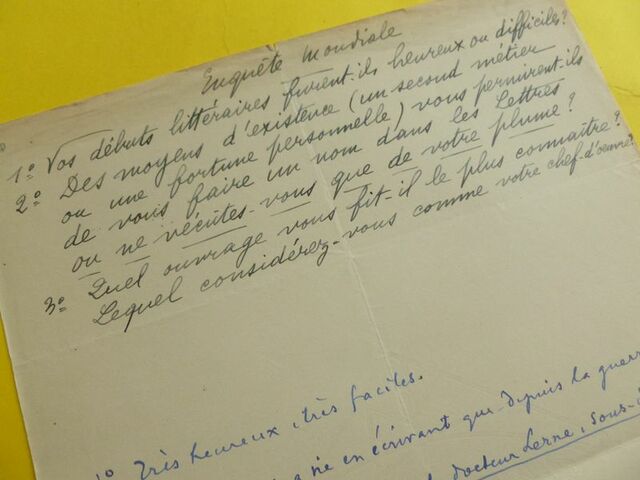 Enquête Mondiale
1º Vos débuts littéraires furent-ils heureux ou difficiles?
2º Des moyens d'existence (un second métier
ou une fortune personnelle) vous permirent-ils
de vous faire un nom dans les Lettres
ou ne vécûtes-vous que de votre plume?
3º Quel ouvrage vous fit-il le plus connaître?
Lequel considérez-vous comme votre chef-d'oeuvre
1º Très heureux, très faciles.
ne en écrivant que depuis la guerre
docteur Lerne, sous-